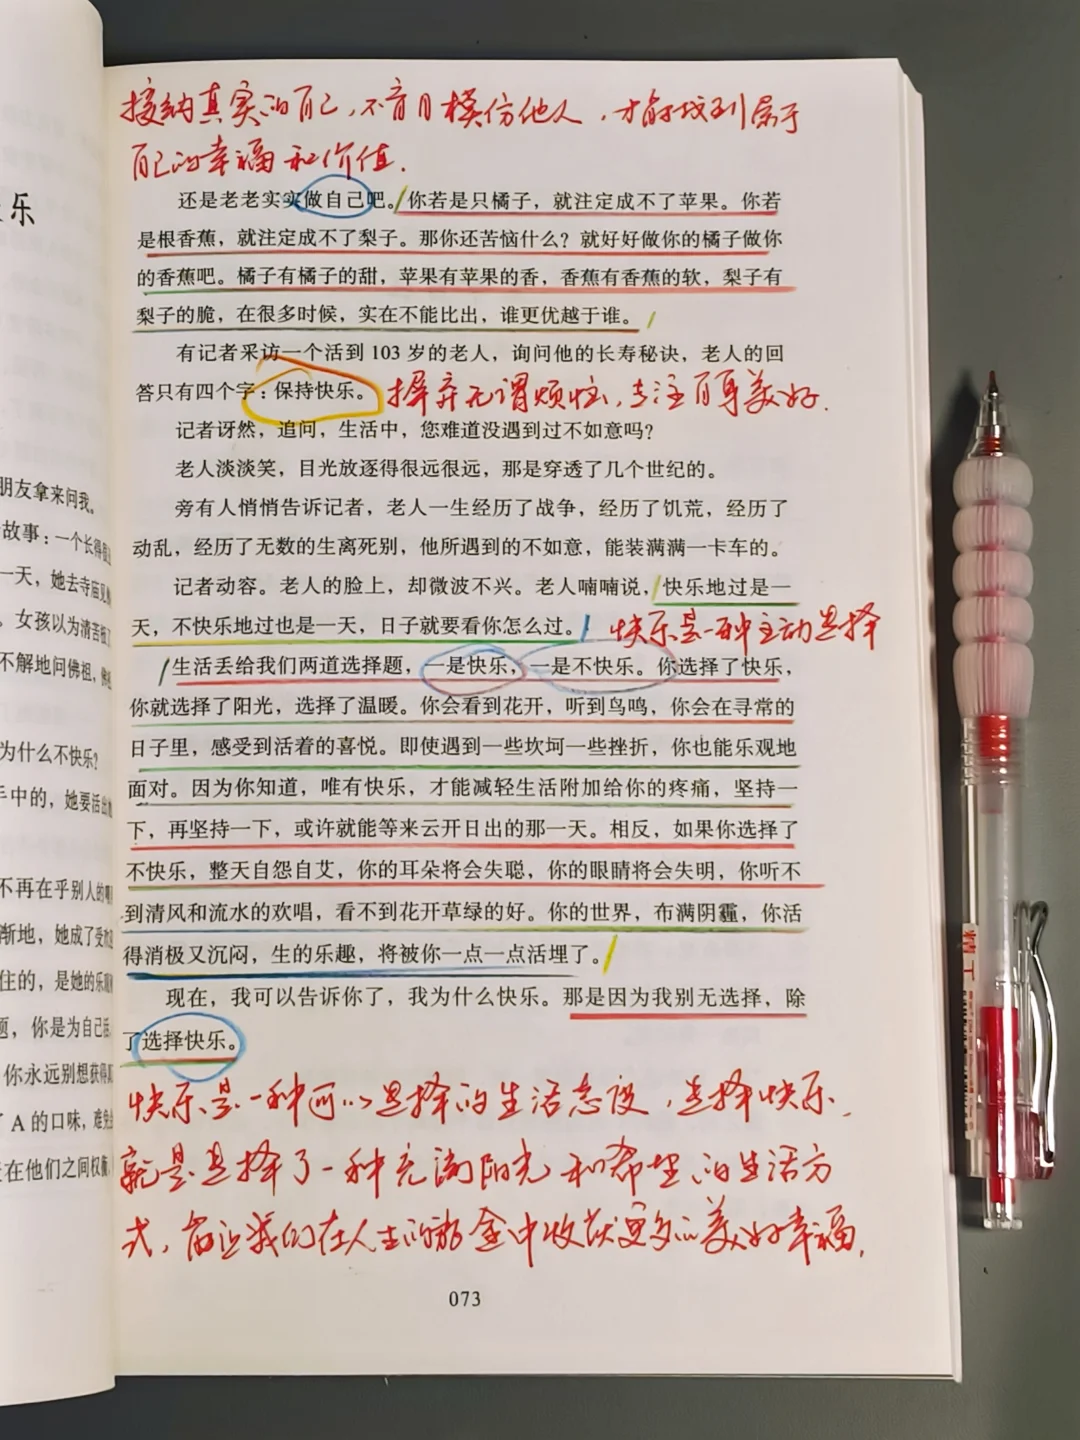 乐
朋友拿来问我。
故事：一个长得
一天，她去寺庙见
。女孩以为清苦
不解地问佛祖，佛
为什么不快乐？
手中的，她要活出
不再在乎别人的
渐地，她成了受欢
住的，是她的乐观
题，你是为自己活
你永远别想获得
了 A 的口味，难免
在他们之间权衡
接纳真实的自己，不盲目模仿他人，才能找到属于
自己的幸福和价值.
还是老老实实做自己吧。你若是只橘子，就注定成不了苹果。你若
是根香蕉，就注定成不了梨子。那你还苦恼什么？就好好做你的橘子做你
的香蕉吧。橘子有橘子的甜，苹果有苹果的香，香蕉有香蕉的软，梨子有
梨子的脆，在很多时候，实在不能比出，谁更优越于谁。
有记者采访一个活到 103 岁的老人，询问他的长寿秘诀，老人的回
答只有四个字：保持快乐。 摒弃无谓烦恼，专注自身美好.
记者讶然，追问，生活中，您难道没遇到过不如意吗？
老人淡淡笑，目光放逐得很远很远，那是穿透了几个世纪的。
旁有人悄悄告诉记者，老人一生经历了战争，经历了饥荒，经历了
动乱，经历了无数的生离死别，他所遇到的不如意，能装满满一卡车的。
记者动容。老人的脸上，却微波不兴。老人喃喃说，快乐地过是一
天，不快乐地过也是一天，日子就要看你怎么过。 快乐是一种主动选择
生活丢给我们两道选择题，一是快乐，一是不快乐。你选择了快乐，
你就选择了阳光，选择了温暖。你会看到花开，听到鸟鸣，你会在寻常的
日子里，感受到活着的喜悦。即使遇到一些坎坷一些挫折，你也能乐观地
面对。因为你知道，唯有快乐，才能减轻生活附加给你的疼痛，坚持一
下，再坚持一下，或许就能等来云开日出的那一天。相反，如果你选择了
不快乐，整天自怨自艾，你的耳朵将会失聪，你的眼睛将会失明，你听不
到清风和流水的欢唱，看不到花开草绿的好。你的世界，布满阴霾，你活
得消极又沉闷，生的乐趣，将被你一点一点活埋了。
现在，我可以告诉你了，我为什么快乐。那是因为我别无选择，除
了选择快乐。
快乐是一种可以选择的生活态度，选择快乐，
就是选择了一种充满阳光和希望的生活方
式，能让我们在人生的旅途中收获更多的美好幸福.
073
精工